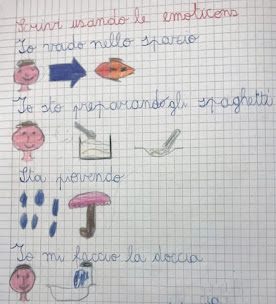 Scrivi usando le emoticons
Io vado nello spazio
Io sto preparando gli spaghetti
Sta piovendo
Io mi faccio la doccia